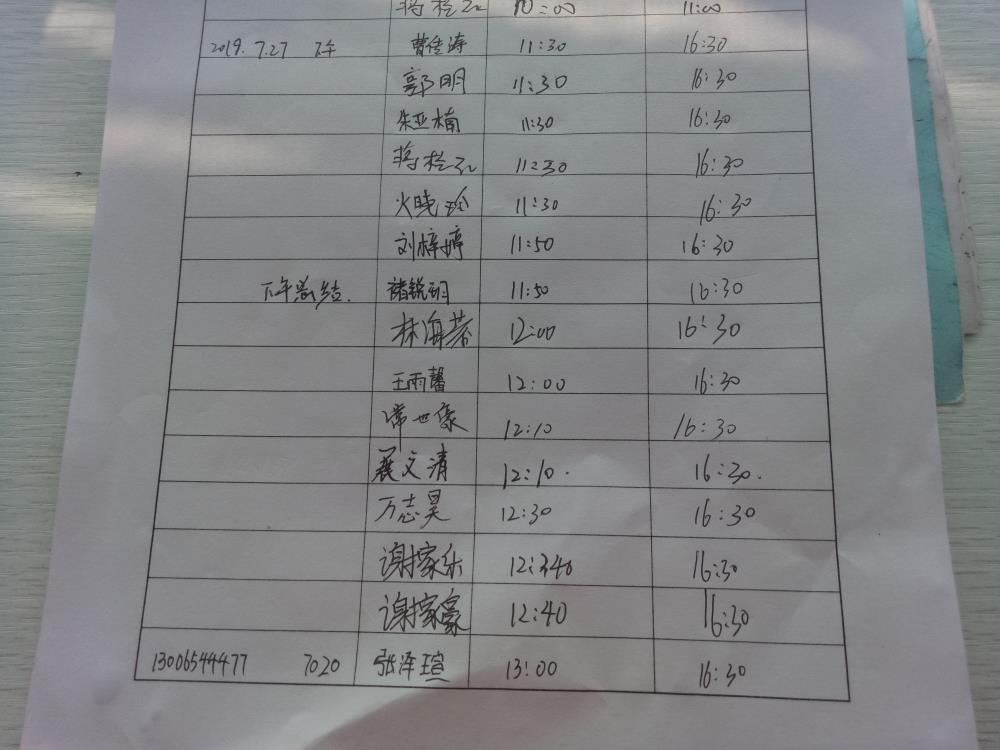 10:00 11:00
2019.7.27 下午 曹传涛 11:30 16:30
郭明 11:30 16:30
朱亚楠 11:30 16:30
11:30 16:30
火晓玲 11:30 16:30
刘梓婷 11:50 16:30
下午总结. 褚锐玥 11:50 16:30
林海蓉 12:00 16:30
王雨馨 12:00 16:30
常世豪 12:10 16:30
展文清 12:10. 16:30.
万志昊 12:30 16:30
谢家乐 12:340 16:30
谢家豪 12:40 16:30
13006544477 7020 张泽瑄 13:00 16:30